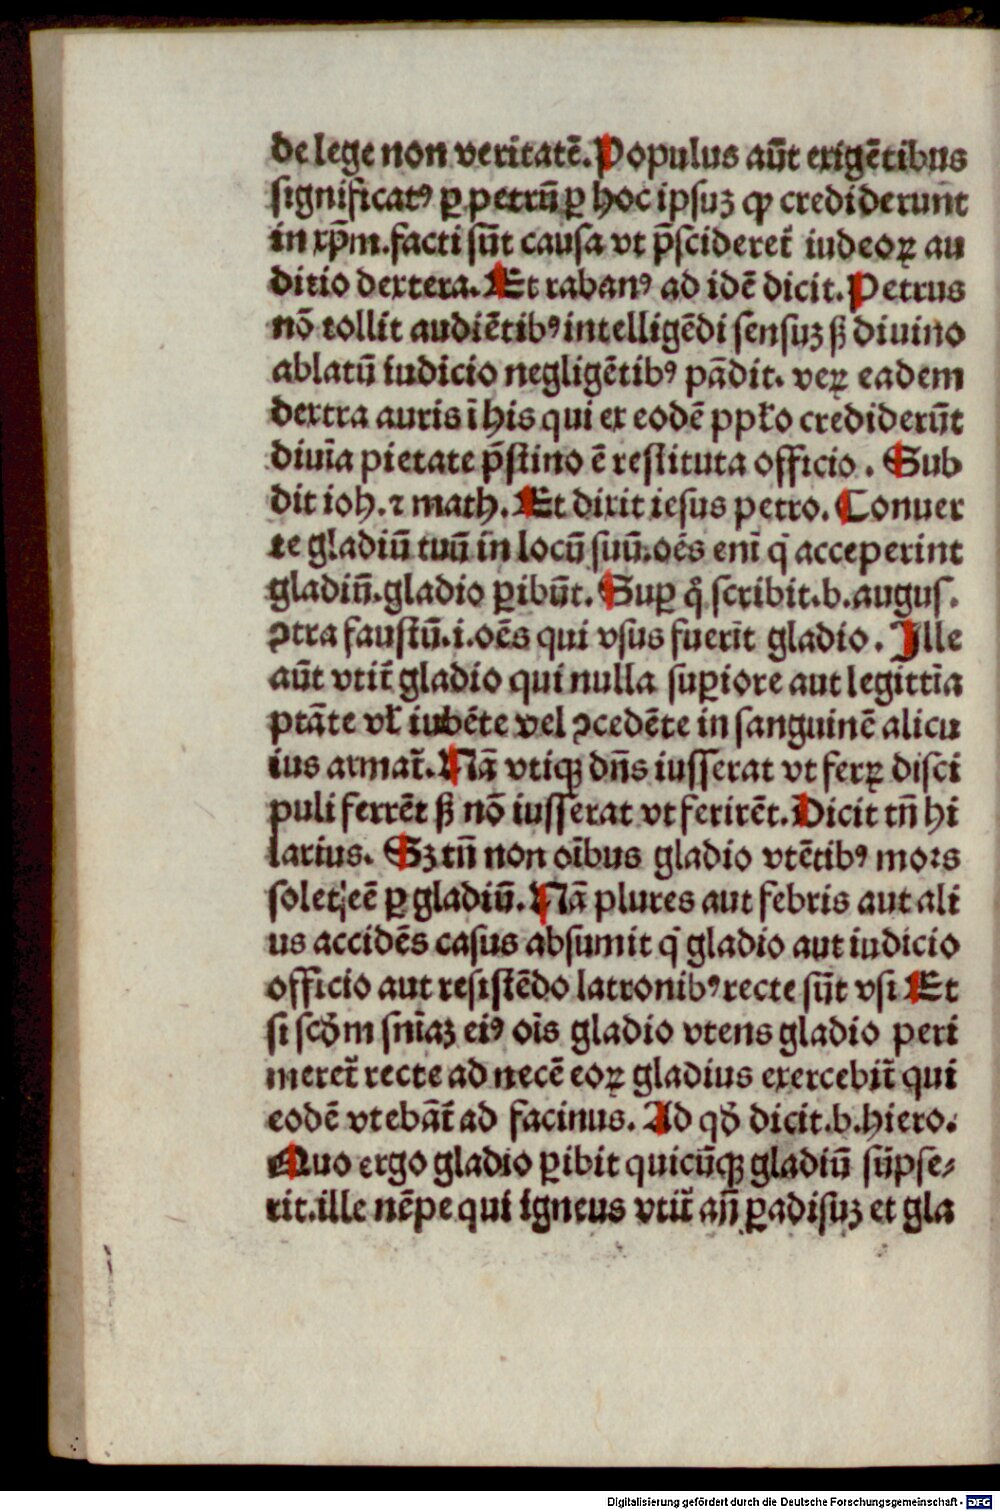 de lege non veritatē. Populus aūt exigētibus
significatꝰ ꝑ petrū ꝑ hoc ipsuꝫ ꝙ crediderunt
in xp̄m. facti sūt causa vt p̄scideret᷑ iudeoꝝ au
ditio dextera. Et rabanꝰ ad idē dicit. Petrus
nō tollit audiētibꝰ intelligēdi sensuꝫ ß diuino
ablatū iudicio negligētibꝰ pādit. veꝝ eadem
dextra auris ī his qui ex eodē ppl̄o crediderūt
diuīa pietate p̄stino ē restituta officio. Sub
dit ioh. ⁊ math. Et dixit iesus petro. Conuer
te gladiū tuū in locū suū. oēs enī q̇ acceperint
gladiū. gladio ꝑibūt. Suꝑ q̊ scribit. b. augus.
ꝯtra faustū. i. oēs qui vsus fuerīt gladio. Ille
aūt vtit᷑ gladio qui nulla suꝑiore aut legittīa
ptāte vl̄ iubēte vel ꝯcedēte in sanguinē alicu
ius armat᷑. Nā vtiqꝫ dn̄s iusserat vt ferꝝ disci
puli ferrēt ß nō iusserat vt ferirēt. Dicit tn̄ hi
larius. Sꝫ tn̄ non oībus gladio vtētibꝰ mors
solet eē ꝑ gladiū. Nā plures aut febris aut ali
us accidēs casus absumit q̇ gladio aut iudicio
officio aut resistēdo latronibꝰ recte sūt vsi Et
si scd̄m sn̄iaꝫ eiꝰ oīs gladio vtens gladio peri
meret᷑ recte ad necē eoꝝ gladius exercebit᷑ qui
eodē vtebāt᷑ ad facinus. Ad qd̄ dicit. b. hiero.
Quo ergo gladio ꝑibit quicūqꝫ gladiū sūpse⸗
rit. ille nēpe qui igneus vtit᷑ an̄ ꝑadisuꝫ et gla
Digitalisierung gefördert durch die Deutsche Forschungsgemeinschaft - DFG